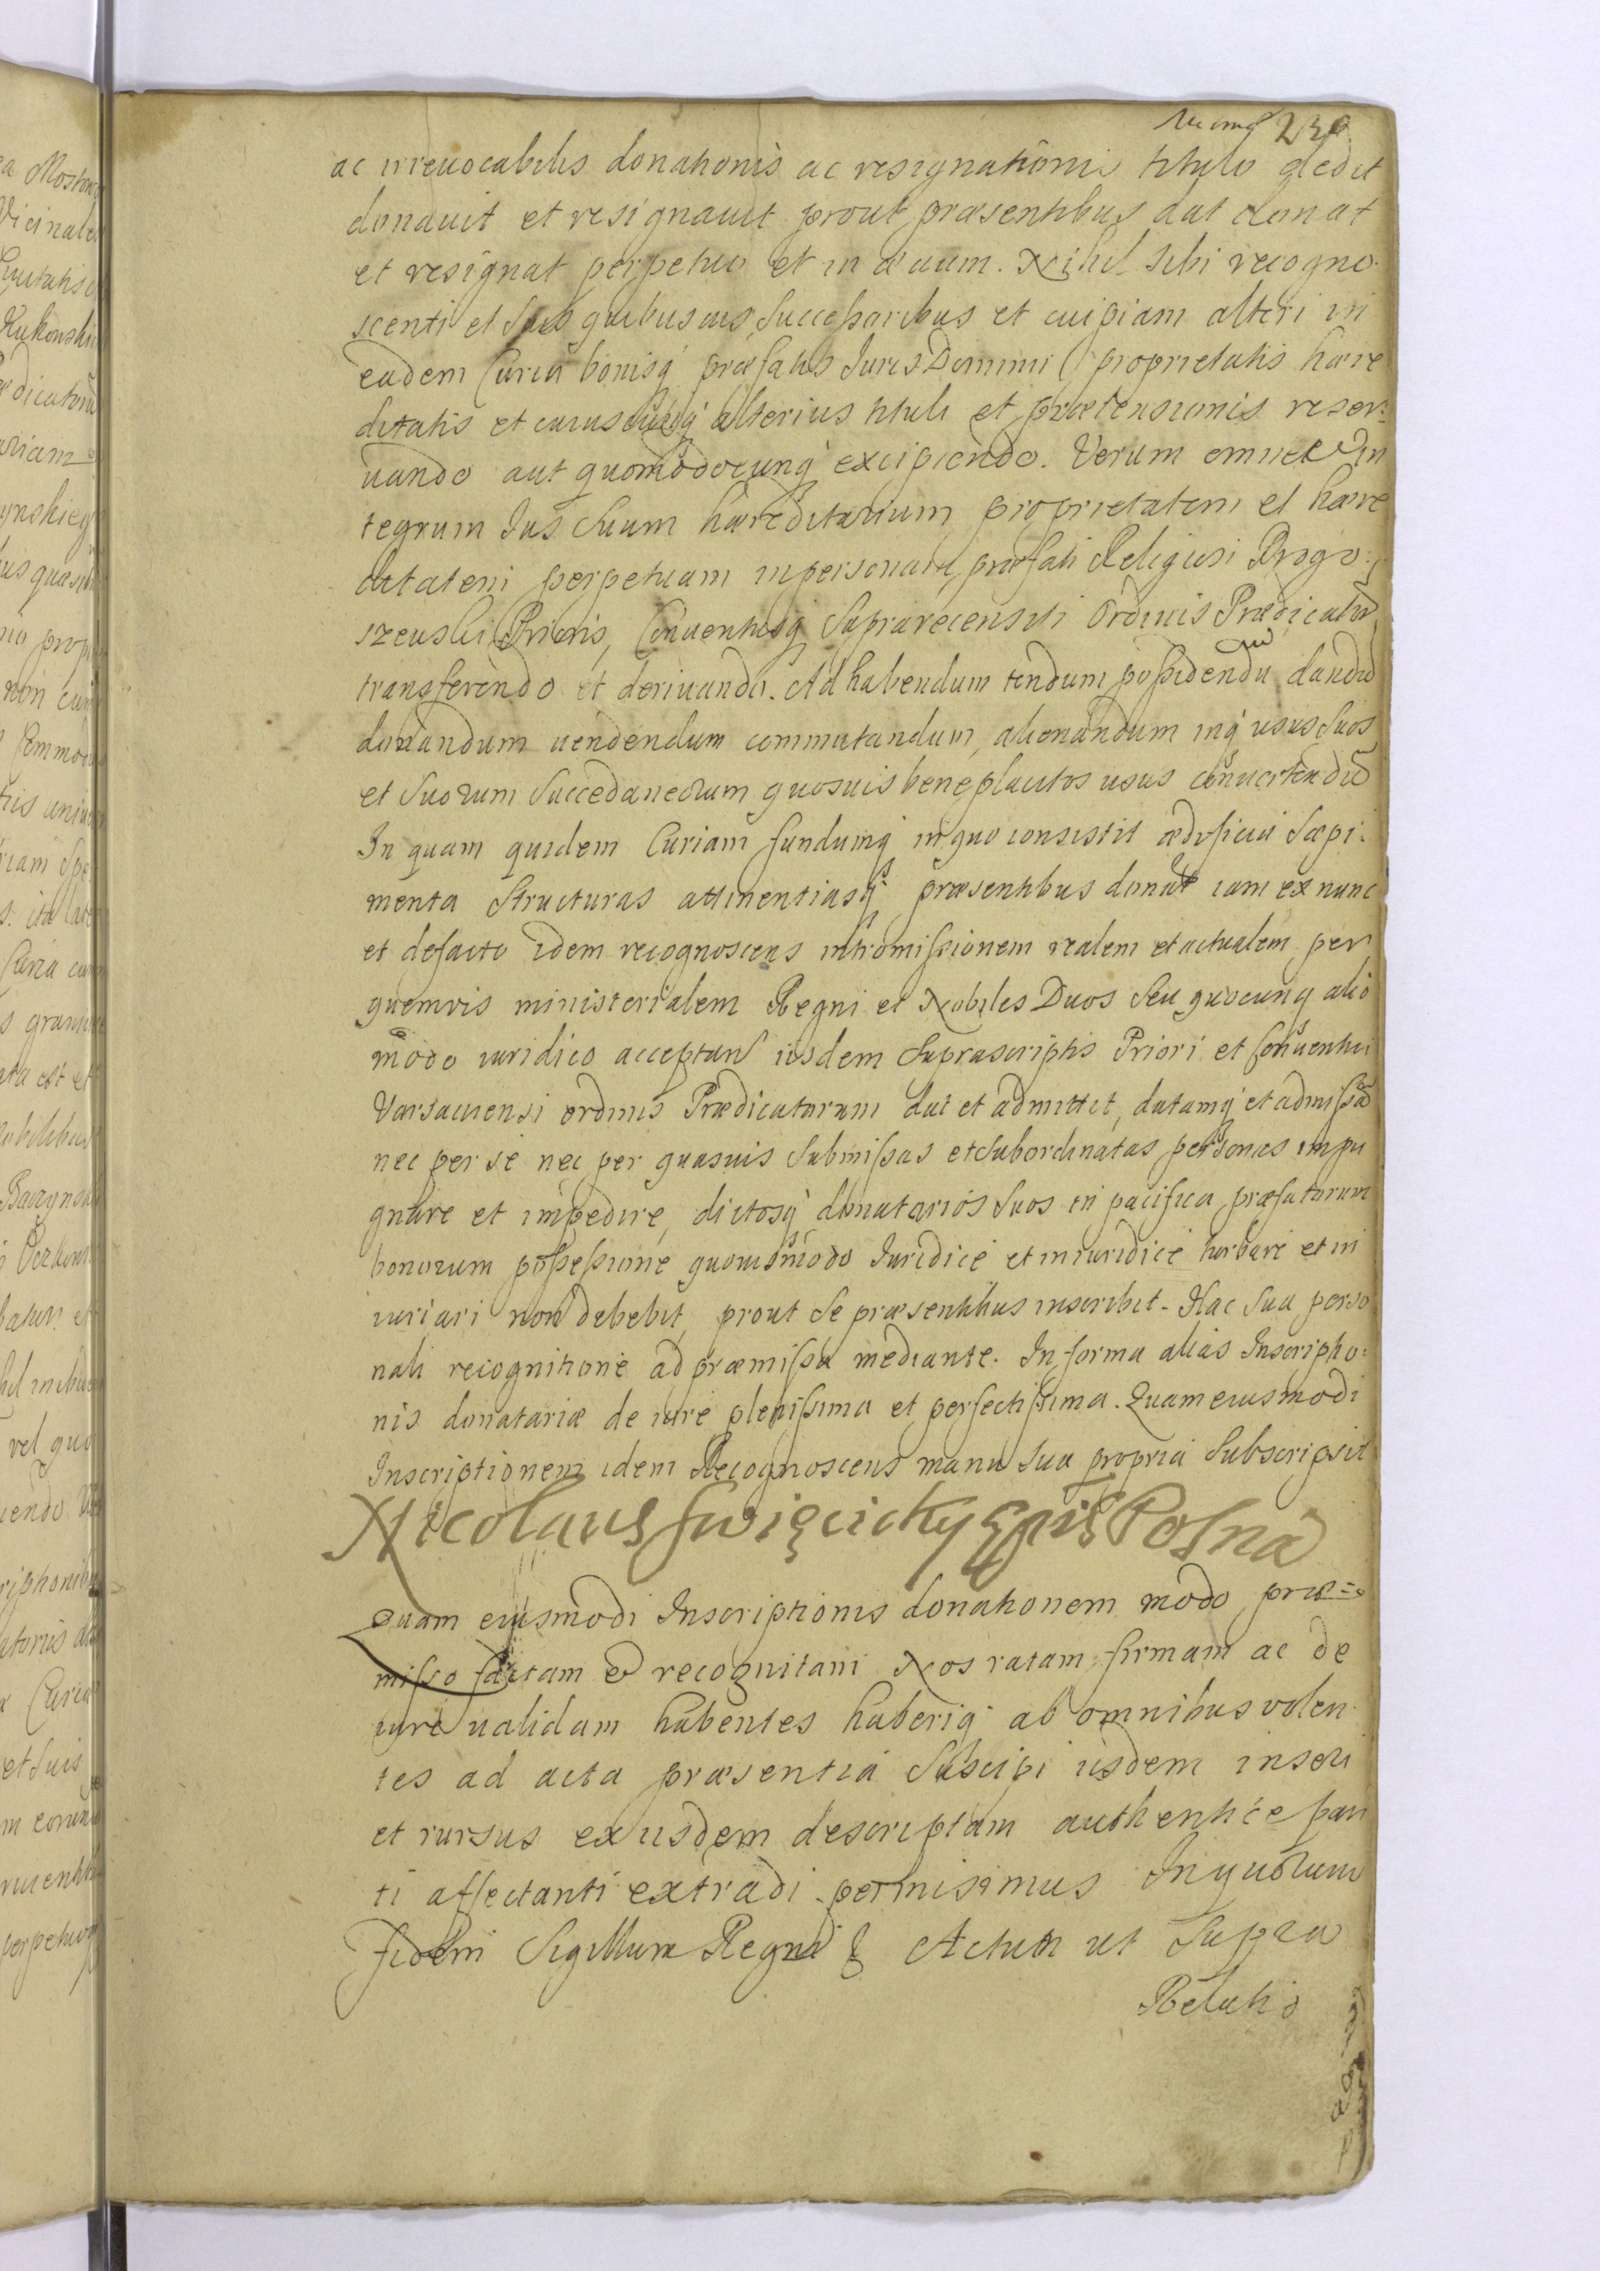 230
ac irreuocabilis donationis ac resignationis titulo dedit
donavit et resignauit prout præsentibus dat donat
et resignat perpetuo et in æuum. Nihil sibi recogno-
scenti et suis quibusuis successoribus et cuipiam alteri in
eadem Curia bonisq præfatis Juris Dominii proprietatis hære
ditatis et cuiuscunq alterius tituli et prætensionis reser-
uando aut quomodocunq excipiendo. Verum omne et in
tegrum Jus suum hæreditarium proprietatem et hære
ditatem perpetuam in personam præfati Religiosi Drogo-
szeuski Prioris, Conuentusq suprarecensiti Ordinis Prædicator
transferendo et deriuando. Ad habendum tendum possidendū dandū
donandum uendendum commutandum, alienandum inq usus suos
et suorum succedaneorum quosuis beneplacitos usus conuertendū
In quam quidem Curiam fundumq in quo consistit ædificia Sæpi-
menta structuras attinentiasq præsentibus donat iam ex nunc
et defacto idem recognoscens intromissionem realem et actualem per
quemvis ministerialem Regni et Nobiles Duos seu quocunq alio
modo iuridico acceptan iisdem suprascriptis Priori et Conuentui
Varsauiensi ordinis Prædicatorum dat et admittit, datamq et admissā
nec per se nec per quasuis submissas et subordinatas personas impu
gnare et impedire, dictosq donatarios suos in pacifica præfatorum
bonorum possessione quouismodo Juridice et iniuridice turbare et in
iuriari non debebit, prout se præsentibus inscribit. Hac sua perso
nali recognitione ad præmissa mediante. In forma alias Inscriptio-
nis donatariæ de iure plenissima et perfectissima. Quam eiusmodi
Inscriptionem idem Recognoscens manu sua propria subscripsit
Nicolaus Swięcicky Epis Posna
Quam eiusmodi Inscriptionis donationem modo præ=
misso factam et recognitam Nos ratam firmam ac de
iure ualidam habentes haberiq ab omnibus volen-
tes ad acta præsentia suscipi iisdem inseri
et rursus ex iisdem descriptam authentice par
ti affectanti extradi permisimus In quorum
fidem Sigillum Regni & Actum ut supra
Relatio